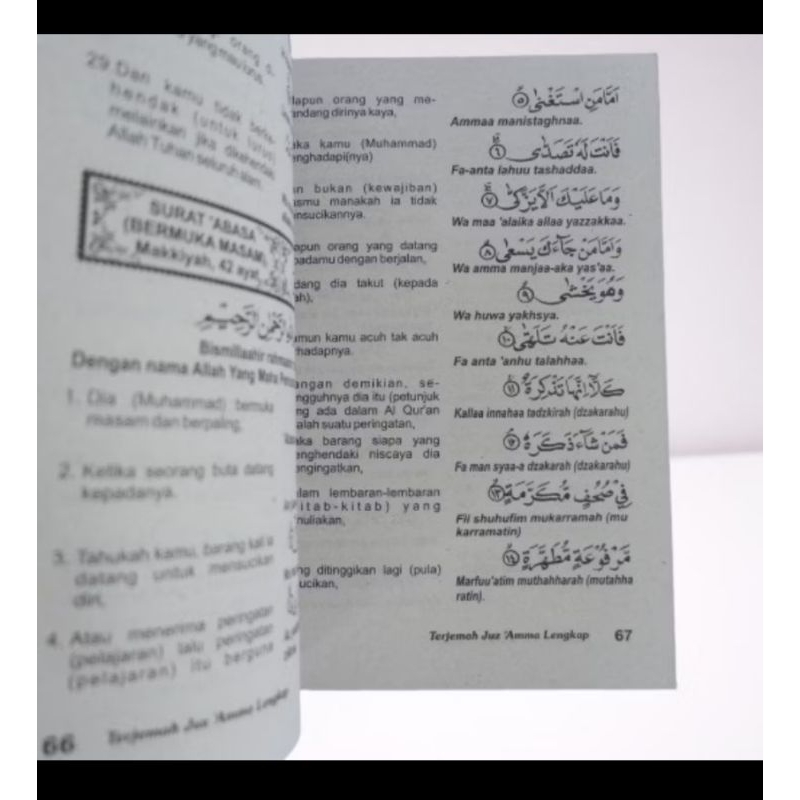 29. Dan kamu tidak
hendak (untuk
melainkan jika dikehendaki
Allah Tuhan seluruh alam.
SURAT 'ABASA
(BERMUKA MASAM)
Makkiyah, 42 ayat
Bismillaahir rahmaa
Dengan nama Allah Yang Maha
1. Dia (Muhammad) bermuka
masam dan berpaling,
2. Ketika seorang buta datang
kepadanya.
3. Tahukah kamu, barang kali ia
datang untuk mensucikan
diri,
4. Atau menerima peringatan
(pelajaran) lalu peringatan
(pelajaran) itu berguna
66 Terjemah Juz 'Amma Lengkap
dapun orang yang me-
andang dirinya kaya,
aka kamu (Muhammad)
enghadapi(nya)
an bukan (kewajiban)
asmu manakah ia tidak
ensucikannya.
dapun orang yang datang
padamu dengan berjalan,
dang dia takut (kepada
ah),
amun kamu acuh tak acuh
rhadapnya.
angan demikian, se-
ngguhnya dia itu (petunjuk
ng ada dalam Al Qur'an
alah suatu peringatan,
aka barang siapa yang
enghendaki niscaya dia
engingatkan,
alam lembaran-lembaran
kitab-kitab) yang
muliakan,
ng ditinggikan lagi (pula)
ucikan,
اَمَّا مَنِ اسْتَغْنٰىۙ ٥
Ammaa manistaghnaa.
فَاَنْتَ لَهٗ تَصَدّٰىۗ ٦
Fa-anta lahuu tashaddaa.
وَمَا عَلَيْكَ اَلَّا يَزَّكّٰىۗ ٧
Wa maa 'alaika allaa yazzakkaa.
وَاَمَّا مَنْ جَاۤءَكَ يَسْعٰىۙ ٨
Wa amma manjaa-aka yas'aa.
وَهُوَ يَخْشٰىۙ ٩
Wa huwa yakhsya.
فَاَنْتَ عَنْهُ تَلَهّٰىۚ ١٠
Fa anta 'anhu talahhaa.
كَلَّآ اِنَّهَا تَذْكِرَةٌۚ ١١
Kallaa innahaa tadzkirah (dzakarahu)
فَمَنْ شَاۤءَ ذَكَرَهٗۘ ١٢
Fa man syaa-a dzakarah (dzakarahu)
فِيْ صُحُفٍ مُّكَرَّمَةٍۙ ١٣
Fii shuhufim mukarramah (mu
karramatin)
مَّرْفُوْعَةٍ مُّطَهَّرَةٍۢ ١٤
Marfuu'atim muthahharah (mutahha
ratin).
Terjemah Juz 'Amma Lengkap 67